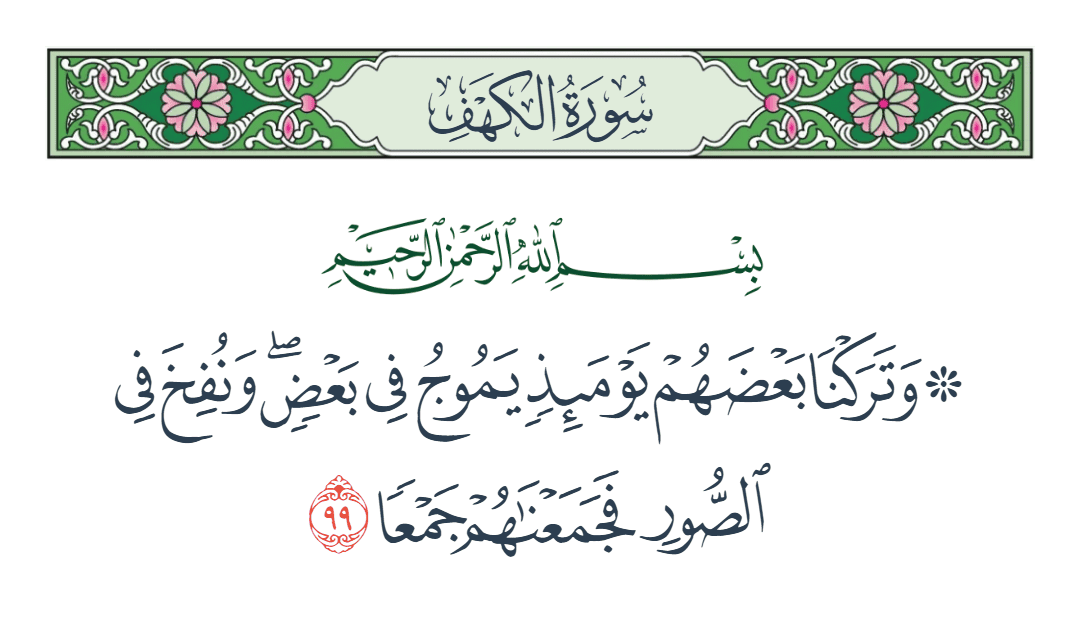 سُورَةُ الكَهۡفِ
بِسۡمِ ٱللَّهِ ٱلرَّحۡمَٰنِ ٱلرَّحِيمِ
۞ وَتَرَكۡنَا بَعۡضَهُمۡ يَوۡمَئِذٖ يَمُوجُ فِي بَعۡضٖۖ وَنُفِخَ فِي
ٱلصُّورِ فَجَمَعۡنَٰهُمۡ جَمۡعٗا ٩٩